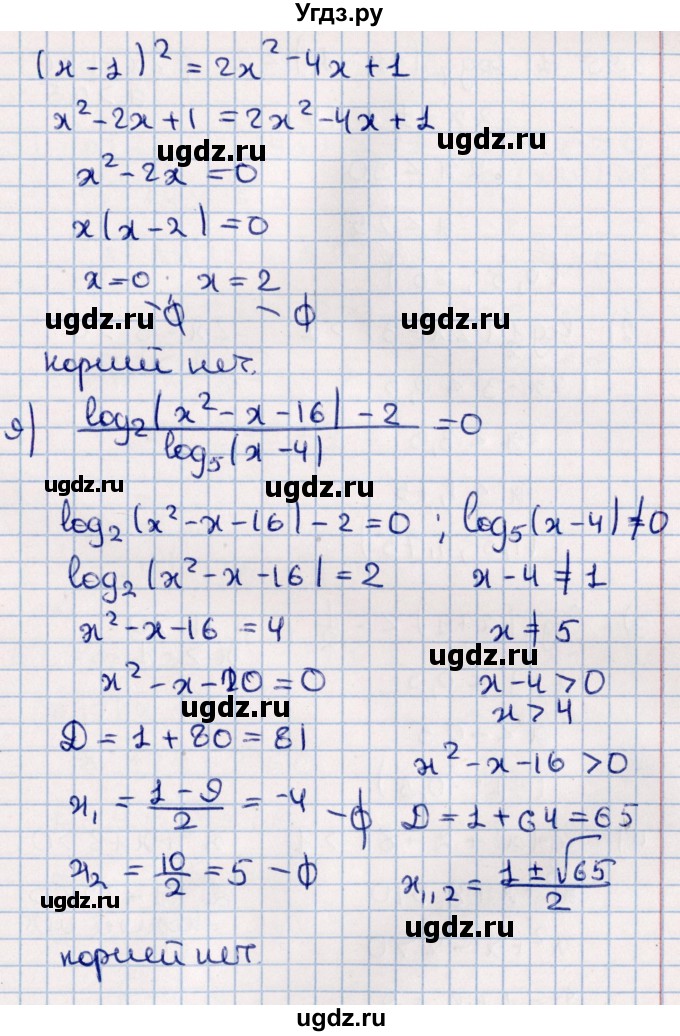 Угдз.ру
(x - 1)² = 2x² - 4x + 1
x² - 2x + 1 = 2x² - 4x + 1
ugdz.ru
ugdz.ru
x² - 2x = 0
x(x - 2) = 0
x = 0 ; x = 2
- ф - ф
ugdz.ru
ugdz.ru
корней нет.
я) (log₂(x² - x - 16) - 2) / (log₅(x - 4)) = 0
ugdz.ru
ugdz.ru
log₂(x² - x - 16) - 2 = 0 ; log₅(x - 4) ≠ 0
log₂(x² - x - 16) = 2 x - 4 ≠ 1
x² - x - 16 = 4 x ≠ 5
ugdz.ru
x² - x - 20 = 0 x - 4 > 0
ugdz.ru
x > 4
D = 1 + 80 = 81
x² - x - 16 > 0
x₁ = (1 - 9)/2 = -4 - ф D = 1 + 64 = 65
x₂ = 10/2 = 5 - ф x₁,₂ = (1 ± √65)/2
ugdz.ru
ugdz.ru
корней нет
ugdz.ru